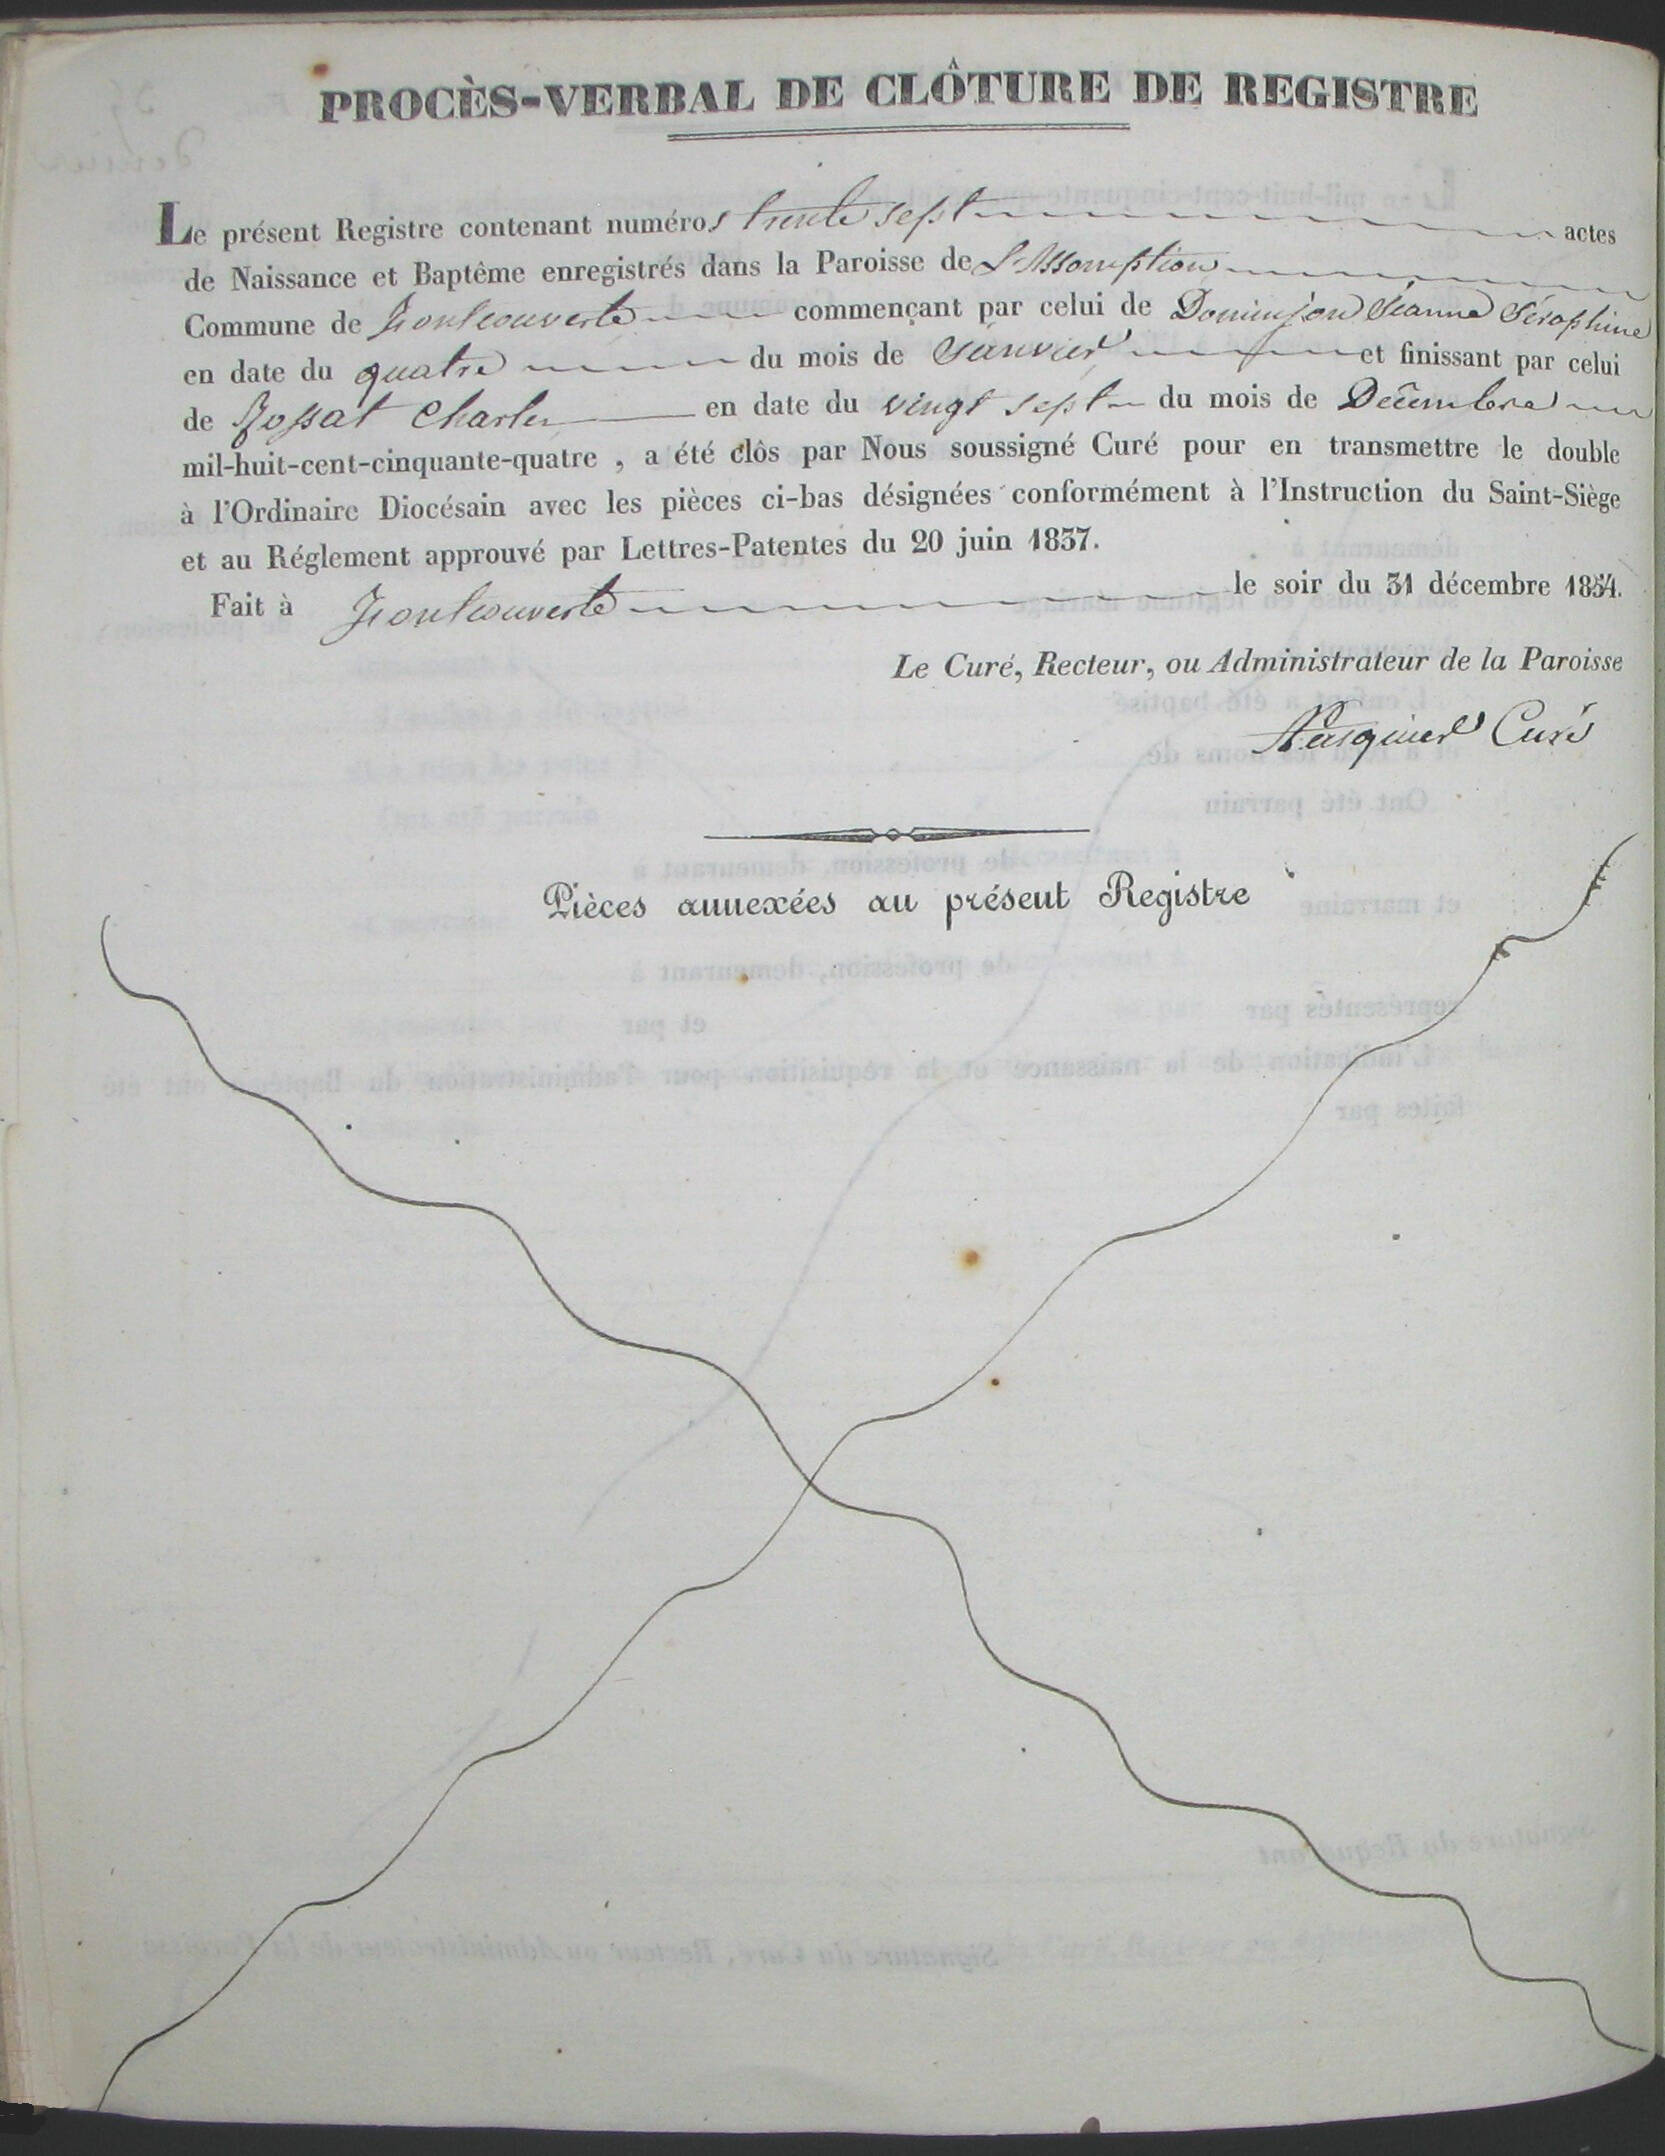 PROCÈS-VERBAL DE CLÔTURE DE REGISTRE
Le présent Registre contenant numéros trente sept actes
de Naissance et Baptême enregistrés dans la Paroisse de L'Assomption
Commune de Frontcouverte commençant par celui de Dominjon Jeanne Séraphine
en date du quatre du mois de Janvier et finissant par celui
de Jossat Charles en date du vingt sept du mois de Décembre
mil-huit-cent-cinquante-quatre , a été clôs par Nous soussigné Curé pour en transmettre le double
à l'Ordinaire Diocésain avec les pièces ci-bas désignées conformément à l'Instruction du Saint-Siège
et au Réglement approuvé par Lettres-Patentes du 20 juin 1837.
Fait à Frontcouverte le soir du 31 décembre 1854.
Le Curé, Recteur, ou Administrateur de la Paroisse
Curé
Pièces annexées au présent Registre